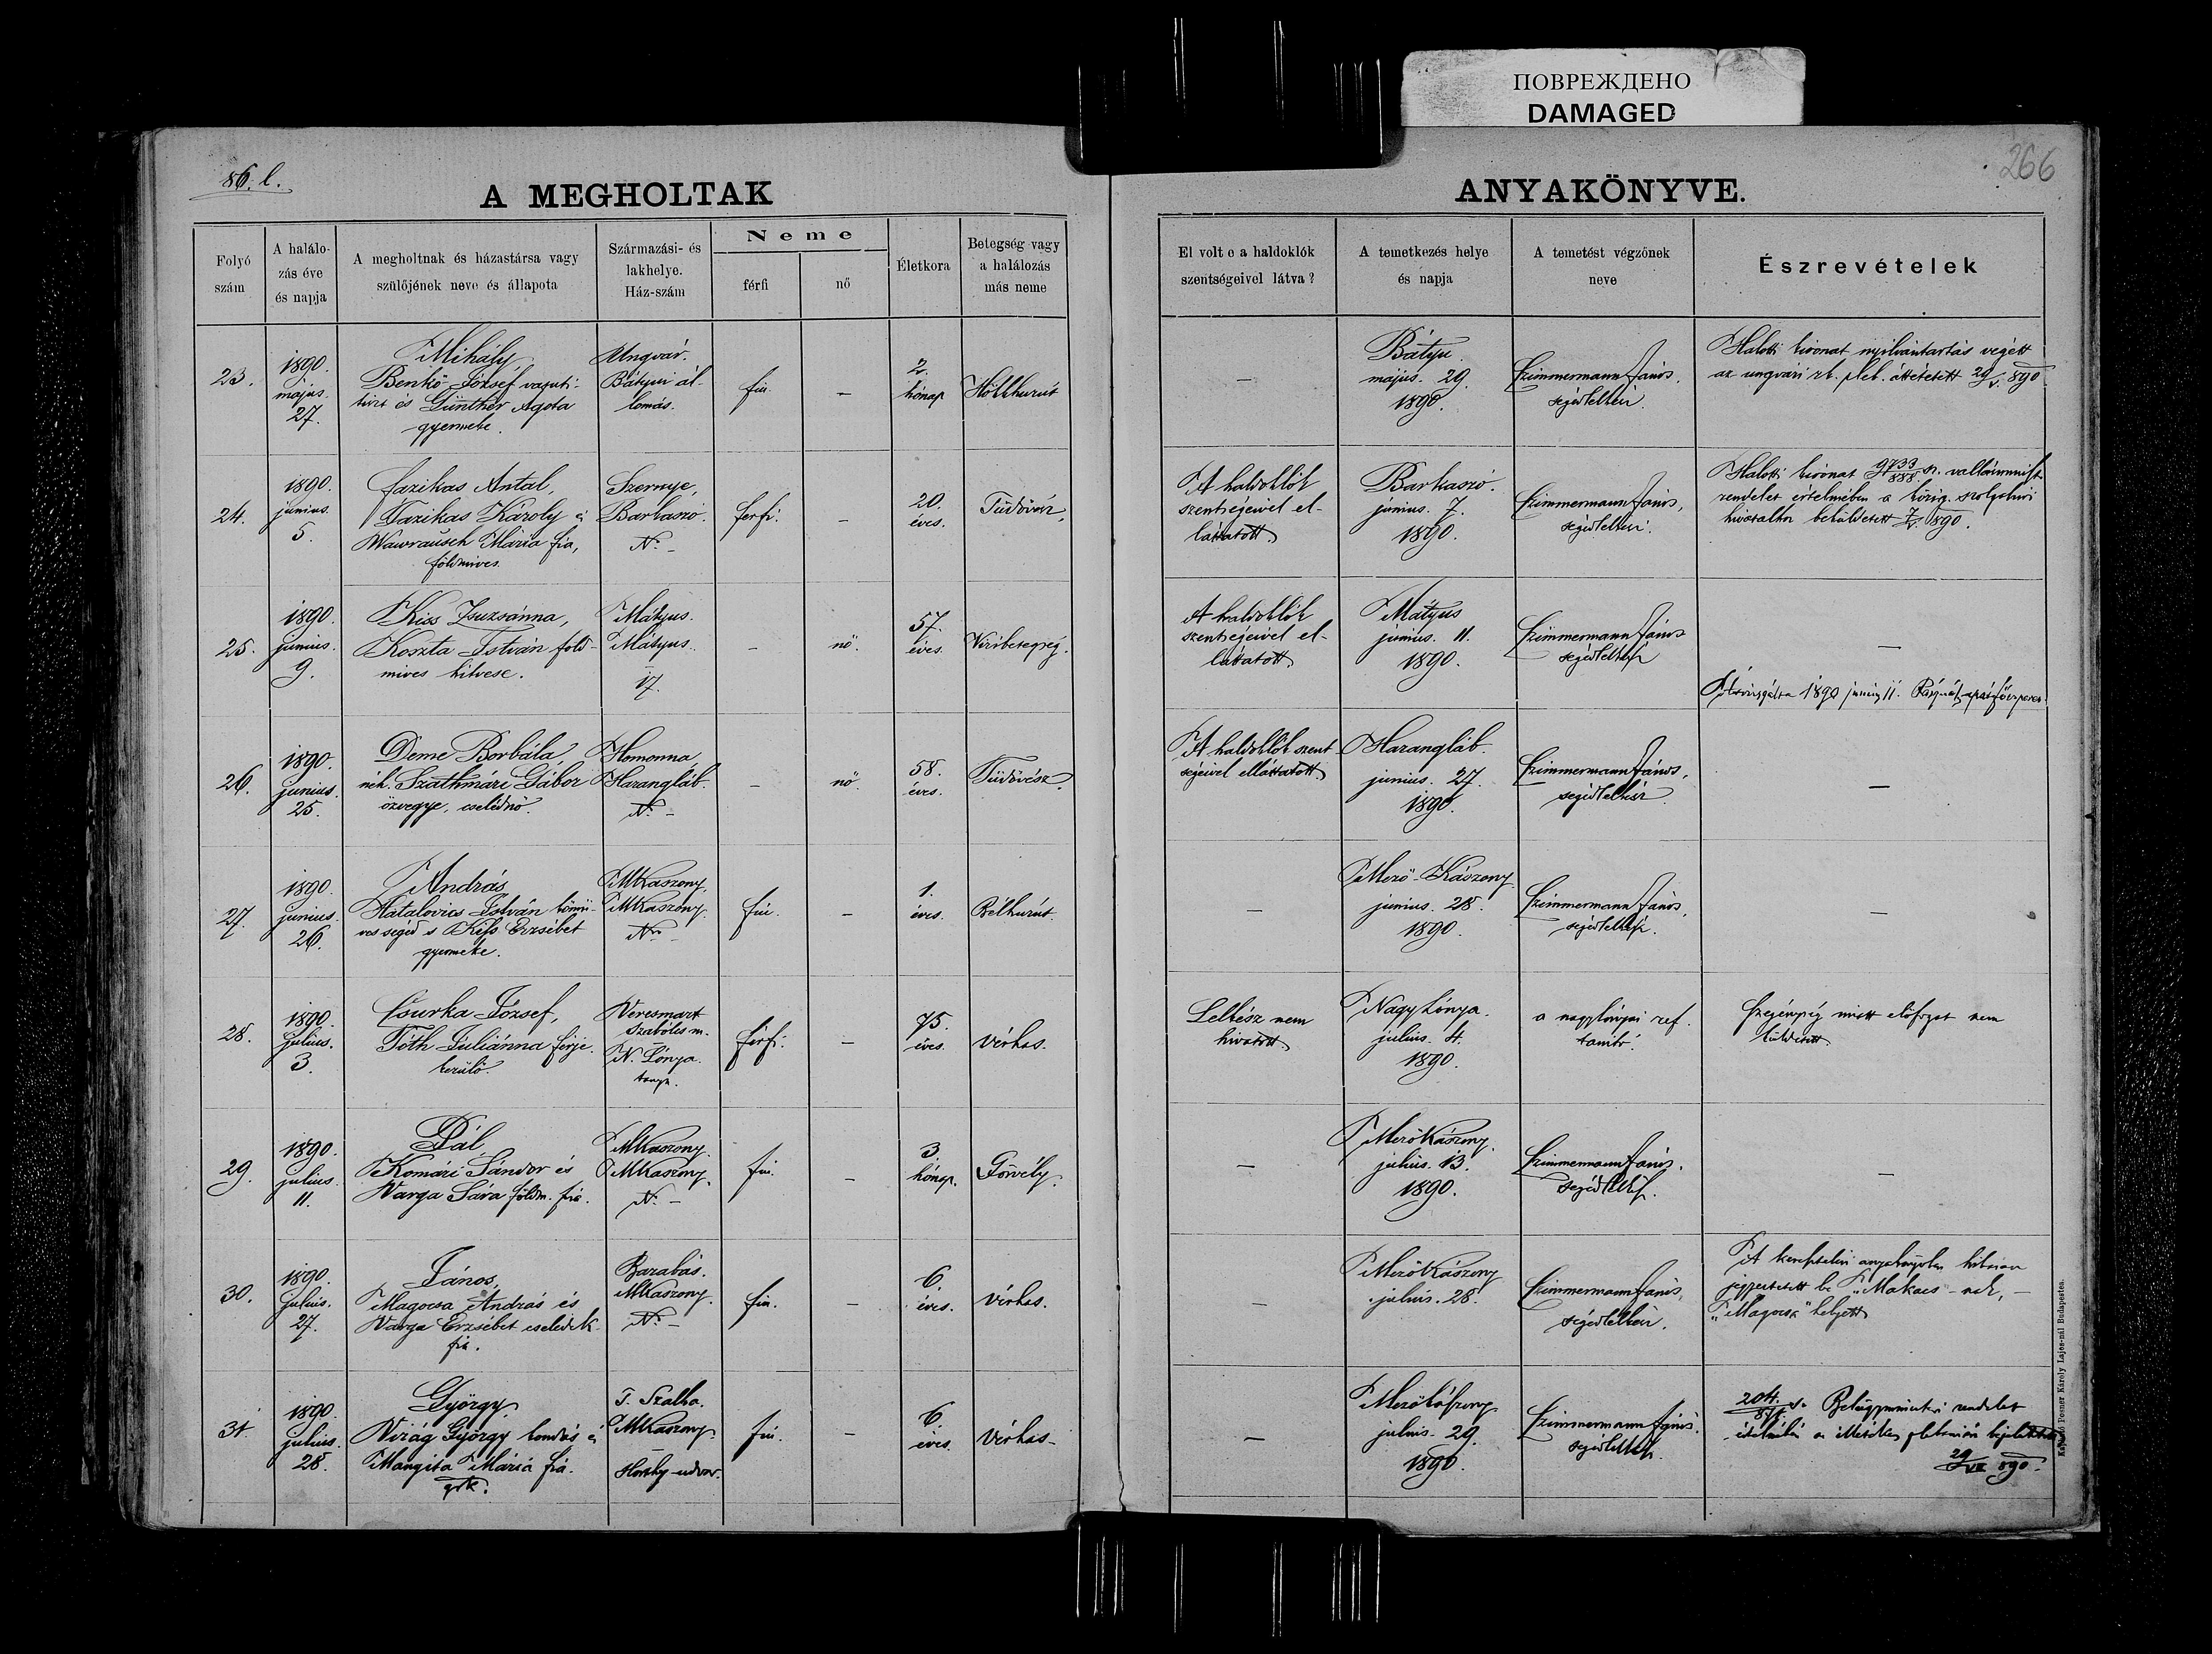 ПОВРЕЖДЕНО
DAMAGED
86. l.
266
A MEGHOLTAK
ANYAKÖNYVE.
Folyó szám
A halálo-zás éve és napja
A megholtnak és házastársa vagy szülőjének neve és állapota
Származási- és lakhelye. Ház-szám
Neme
férfi
nő
Életkora
Betegség vagy a halálozás más neme
El volt e a haldoklók szentségeivel látva?
A temetkezés helye és napja
A temetést végzőnek neve
Észrevételek
23.
1890.
május.
27.
Mihály
Benkő József
és Günther Agota
gyermeke.
Ungvár.
Bátyui ál-
lomás.
fiu
–
2.
hónap
–
Bátyu.
május. 29.
1890.
Czimmermann János,
segédlelkész.
Halotti kivonat nyilvántartás végett
az ungvári rk. pleb. áttétetett 29/V. 890
24.
1890.
junius.
5.
Fazikas Antal,
Fazikas Károly é
Wawrausch Mária fia,
földmives.
Szernye,
Barkaszó.
N. –
férfi.
–
20.
éves.
Tüdővész.
A haldoklók
szentségeivel el-
láttatott.
Barkaszó.
junius. 7.
1890.
Czimmermann János,
segédlelkész.
Halotti kivonat 9733/888 sz.
rendelet értelmében a közig. szolgabirói
hivatalhoz beküldetett 890.
25.
1890.
junius.
9.
Kiss Zsuzsánna,
Koszta István föld-
mives hitvese.
Mátyus.
Mátyus.
17.
–
nő.
57.
éves.
A haldoklók
szentségeivel el-
láttatott.
Mátyus
junius. 11.
1890.
Czimmermann János
segédlelkész
–
1890 junius 11.
26.
1890.
junius.
25.
Deme Borbála,
néh. Szathmári Gábor
özvegye, cselédnő.
Homonna,
Harangláb.
N. –
–
nő.
58.
éves.
Tüdővész.
A haldoklók szent
ségeivel elláttatott.
Harangláb.
junius. 27.
1890.
Czimmermann János,
segédlelkész.
–
27.
1890.
junius.
26.
András
Hatalovics István kőmü-
ves segéd s Kiss Erzsébet
gyermeke.
MKaszony.
MKaszony.
N. –
fiu.
–
1.
éves.
Bélhurut.
–
Mező-Kászony.
junius. 28.
1890.
Czimmermann János,
segédlelkész.
–
28.
1890.
julius.
3.
Csurka József,
Tóth Juliánna férje.
kerülő.
Veresmart
Szabolcs m.
N. Lónya.
tanya.
férfi.
–
75.
éves.
vérhas.
Lelkész nem
hivatott.
Nagy Lónya.
julius. 4.
1890.
a nagylónyai ref.
tanitó.
Szegénység miatt előfogat nem
küldetett.
29.
1890.
julius.
11.
Pál,
Komári Sándor és
Varga Sára földm. fia.
MKaszony.
MKaszony.
N. –
fiu.
–
3.
hónap.
Görvély.
–
MezőKászony.
julius. 13.
1890.
Czimmermann János.
segédlelkész.
–
30.
1890.
julius.
27.
János,
Magocsa András és
Varga Erzsébet cselédek
fia.
Barabás.
MKaszony.
N. –
fiu.
–
6.
éves.
vérhas.
–
MezőKászony
julius. 28.
Czimmermann János,
segédlelkész.
A keresztelési anyakönyvben hibásan
jegyeztetett be "Makacs"-nak, –
"Magocsa" helyett
31.
1890.
julius.
28.
György,
Virág György kondás é
Mangita Mária fia.
gk.
T. Szalka.
MKaszony.
udvar.
fiu.
–
6.
éves.
vérhas.
–
Mezőkászony
julius. 29.
1890.
Czimmermann János.
segédlelkész.
Belügyminiszteri rendelet
890.
Posner Károly Lajos-nál Budapesten.